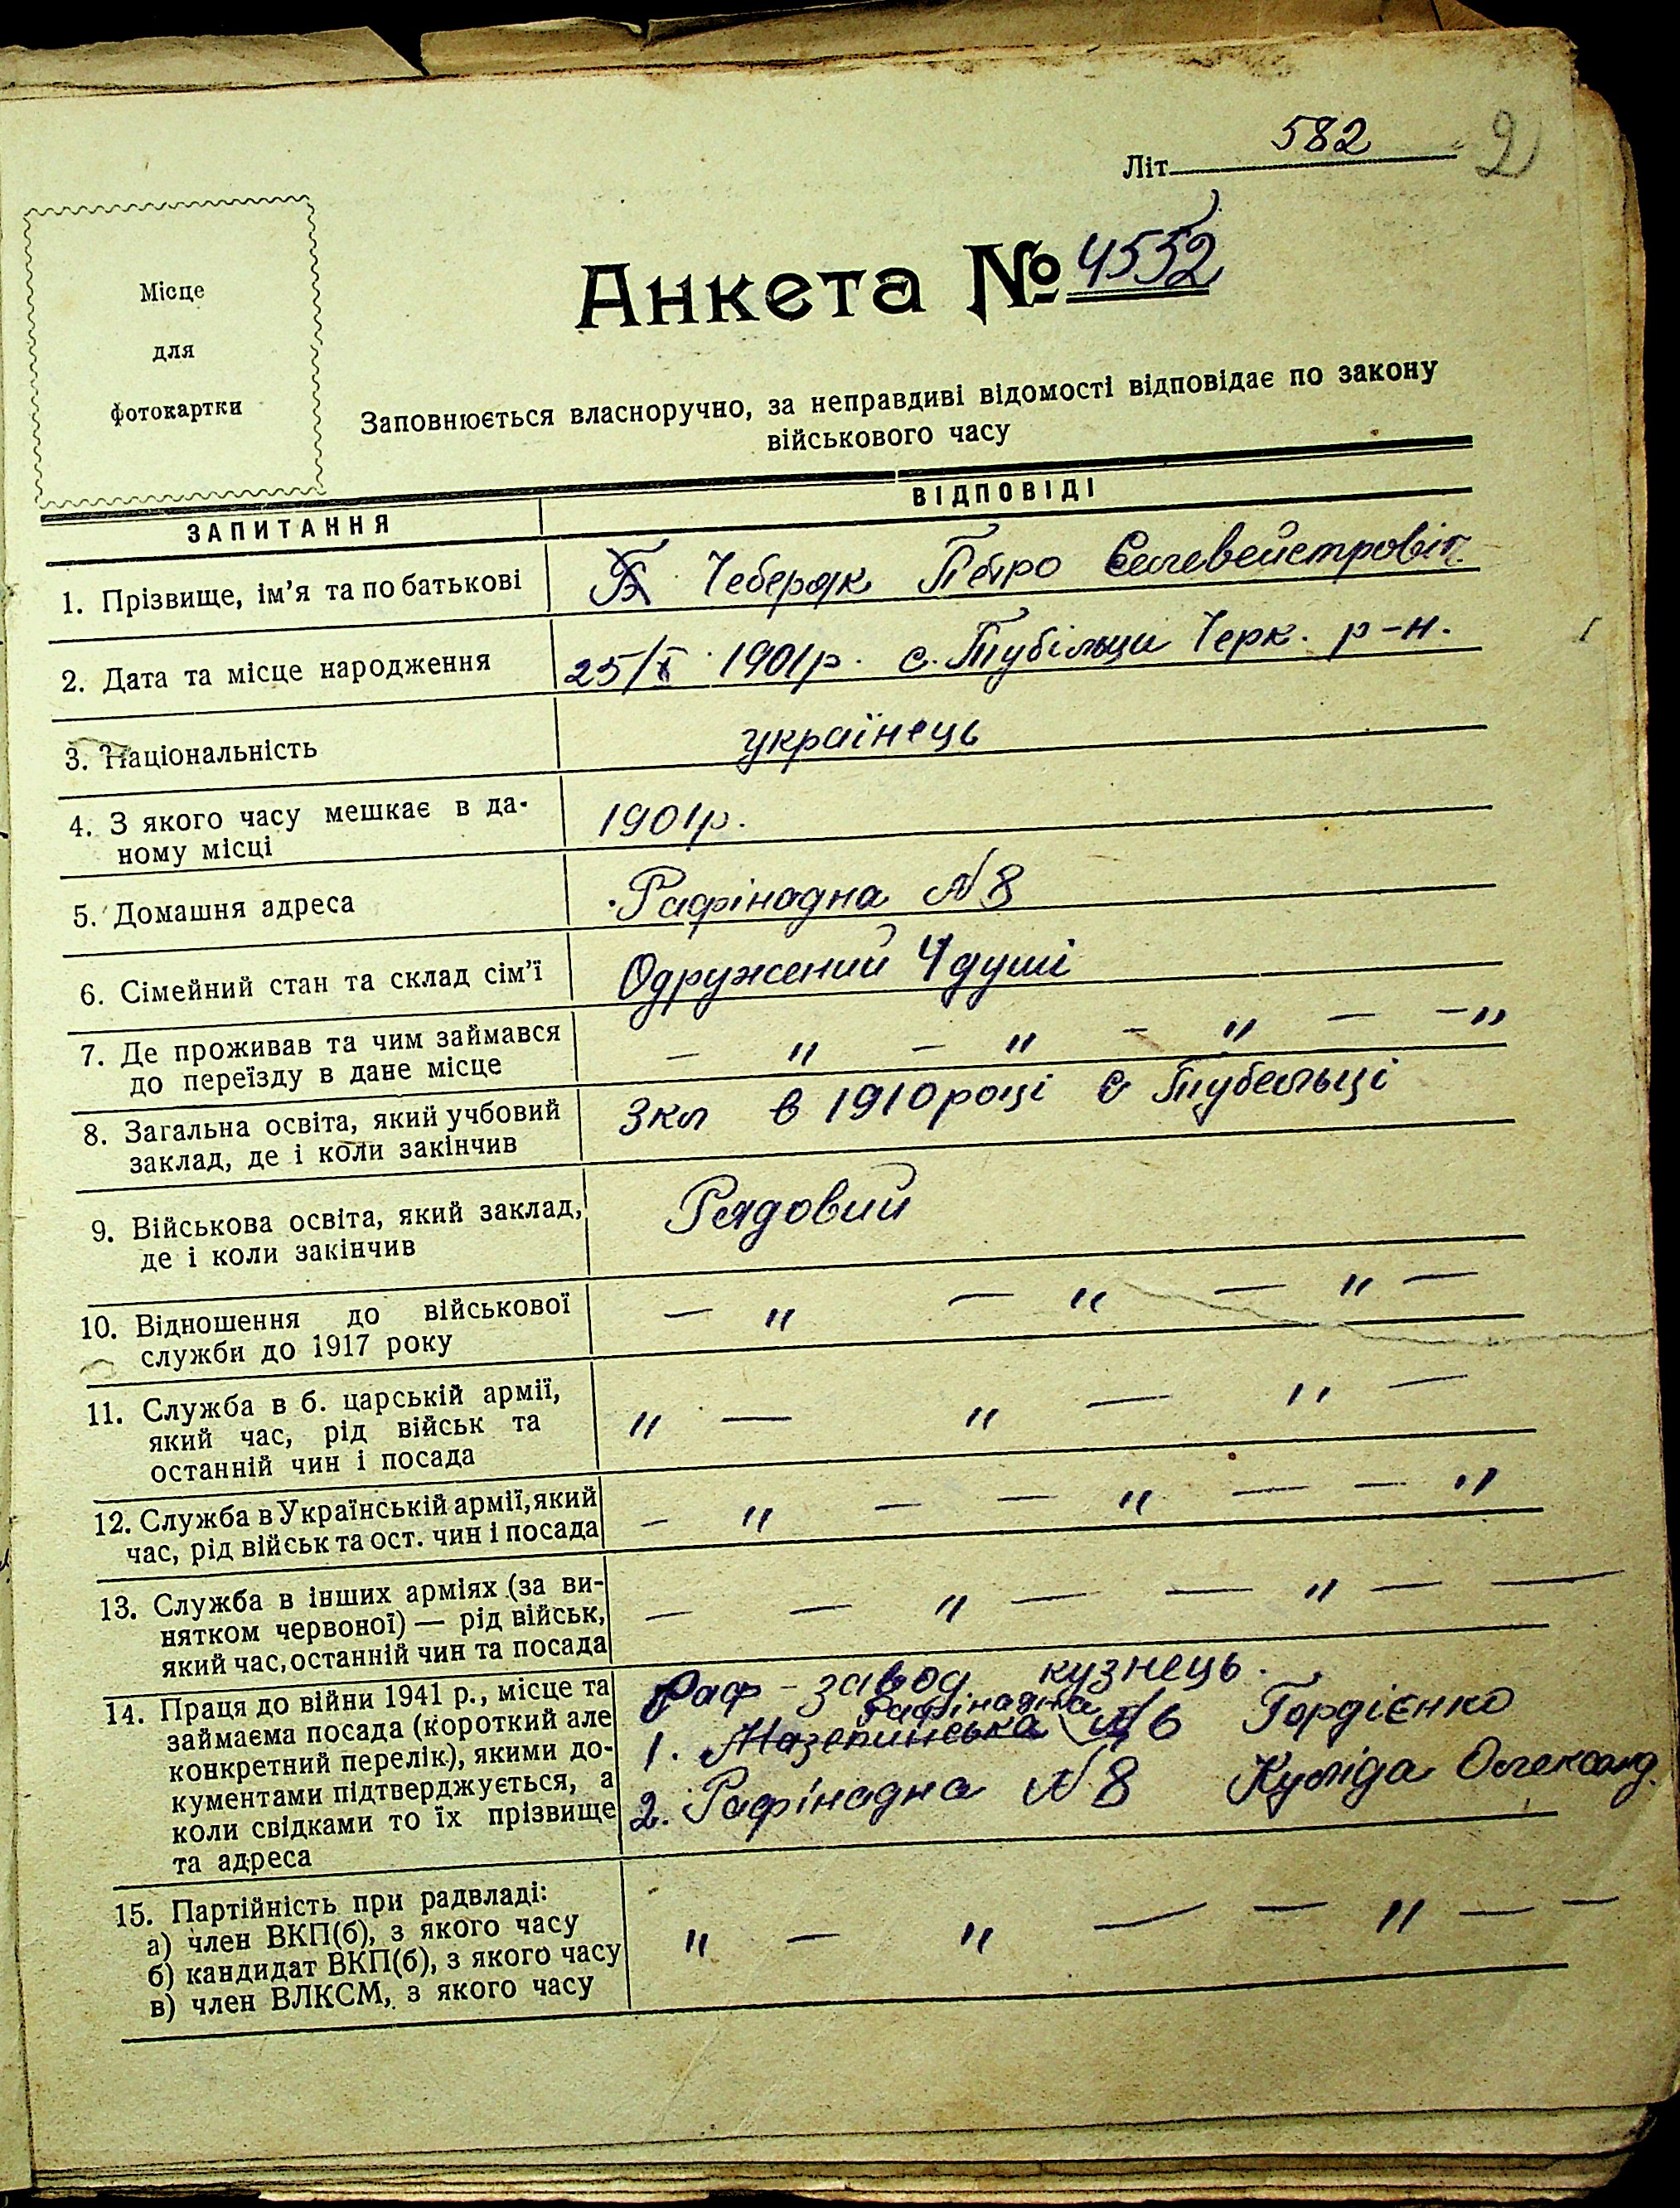 Літ 582 2
Місце
для
фотокартки
Анкета № 4552
Заповнюється власноручно, за неправдиві відомості відповідає по закону
військового часу
ЗАПИТАННЯ ВІДПОВІДІ
1. Прізвище, ім'я та по батькові Чеберяк Петро Селевейстровіч
2. Дата та місце народження 25/X 1901р. с. Тубільци Черк. р-н.
3. Національність українець
4. З якого часу мешкає в да-
ному місці 1901р.
5. Домашня адреса Рафінадна N 8
6. Сімейний стан та склад сім'ї Одружений 4 душі
7. Де проживав та чим займався
до переїзду в дане місце — " — " — " — — "
8. Загальна освіта, який учбовий
заклад, де і коли закінчив 3кл в 1910 році с Тубельці
9. Військова освіта, який заклад,
де і коли закінчив Рядовий
10. Відношення до військової
служби до 1917 року — " — " — " —
11. Служба в б. царській армії,
який час, рід військ та
останній чин і посада " — " — " —
12. Служба в Українській армії, який
час, рід військ та ост. чин і посада — " — — " — — "
13. Служба в інших арміях (за ви-
нятком червоної) — рід військ,
який час, останній чин та посада — — " — — " — —
14. Праця до війни 1941 р., місце та
займаєма посада (короткий але
конкретний перелік), якими до-
кументами підтверджується, а
коли свідками то їх прізвище
та адреса
Раф-завод кузнець.
Рафінадна
1. Мазепинська N 6 Гордієнко
2. Рафінадна N 8 Куліда Олександ.
15. Партійність при радвладі:
а) член ВКП(б), з якого часу
б) кандидат ВКП(б), з якого часу
в) член ВЛКСМ, з якого часу
" — " — — " — —